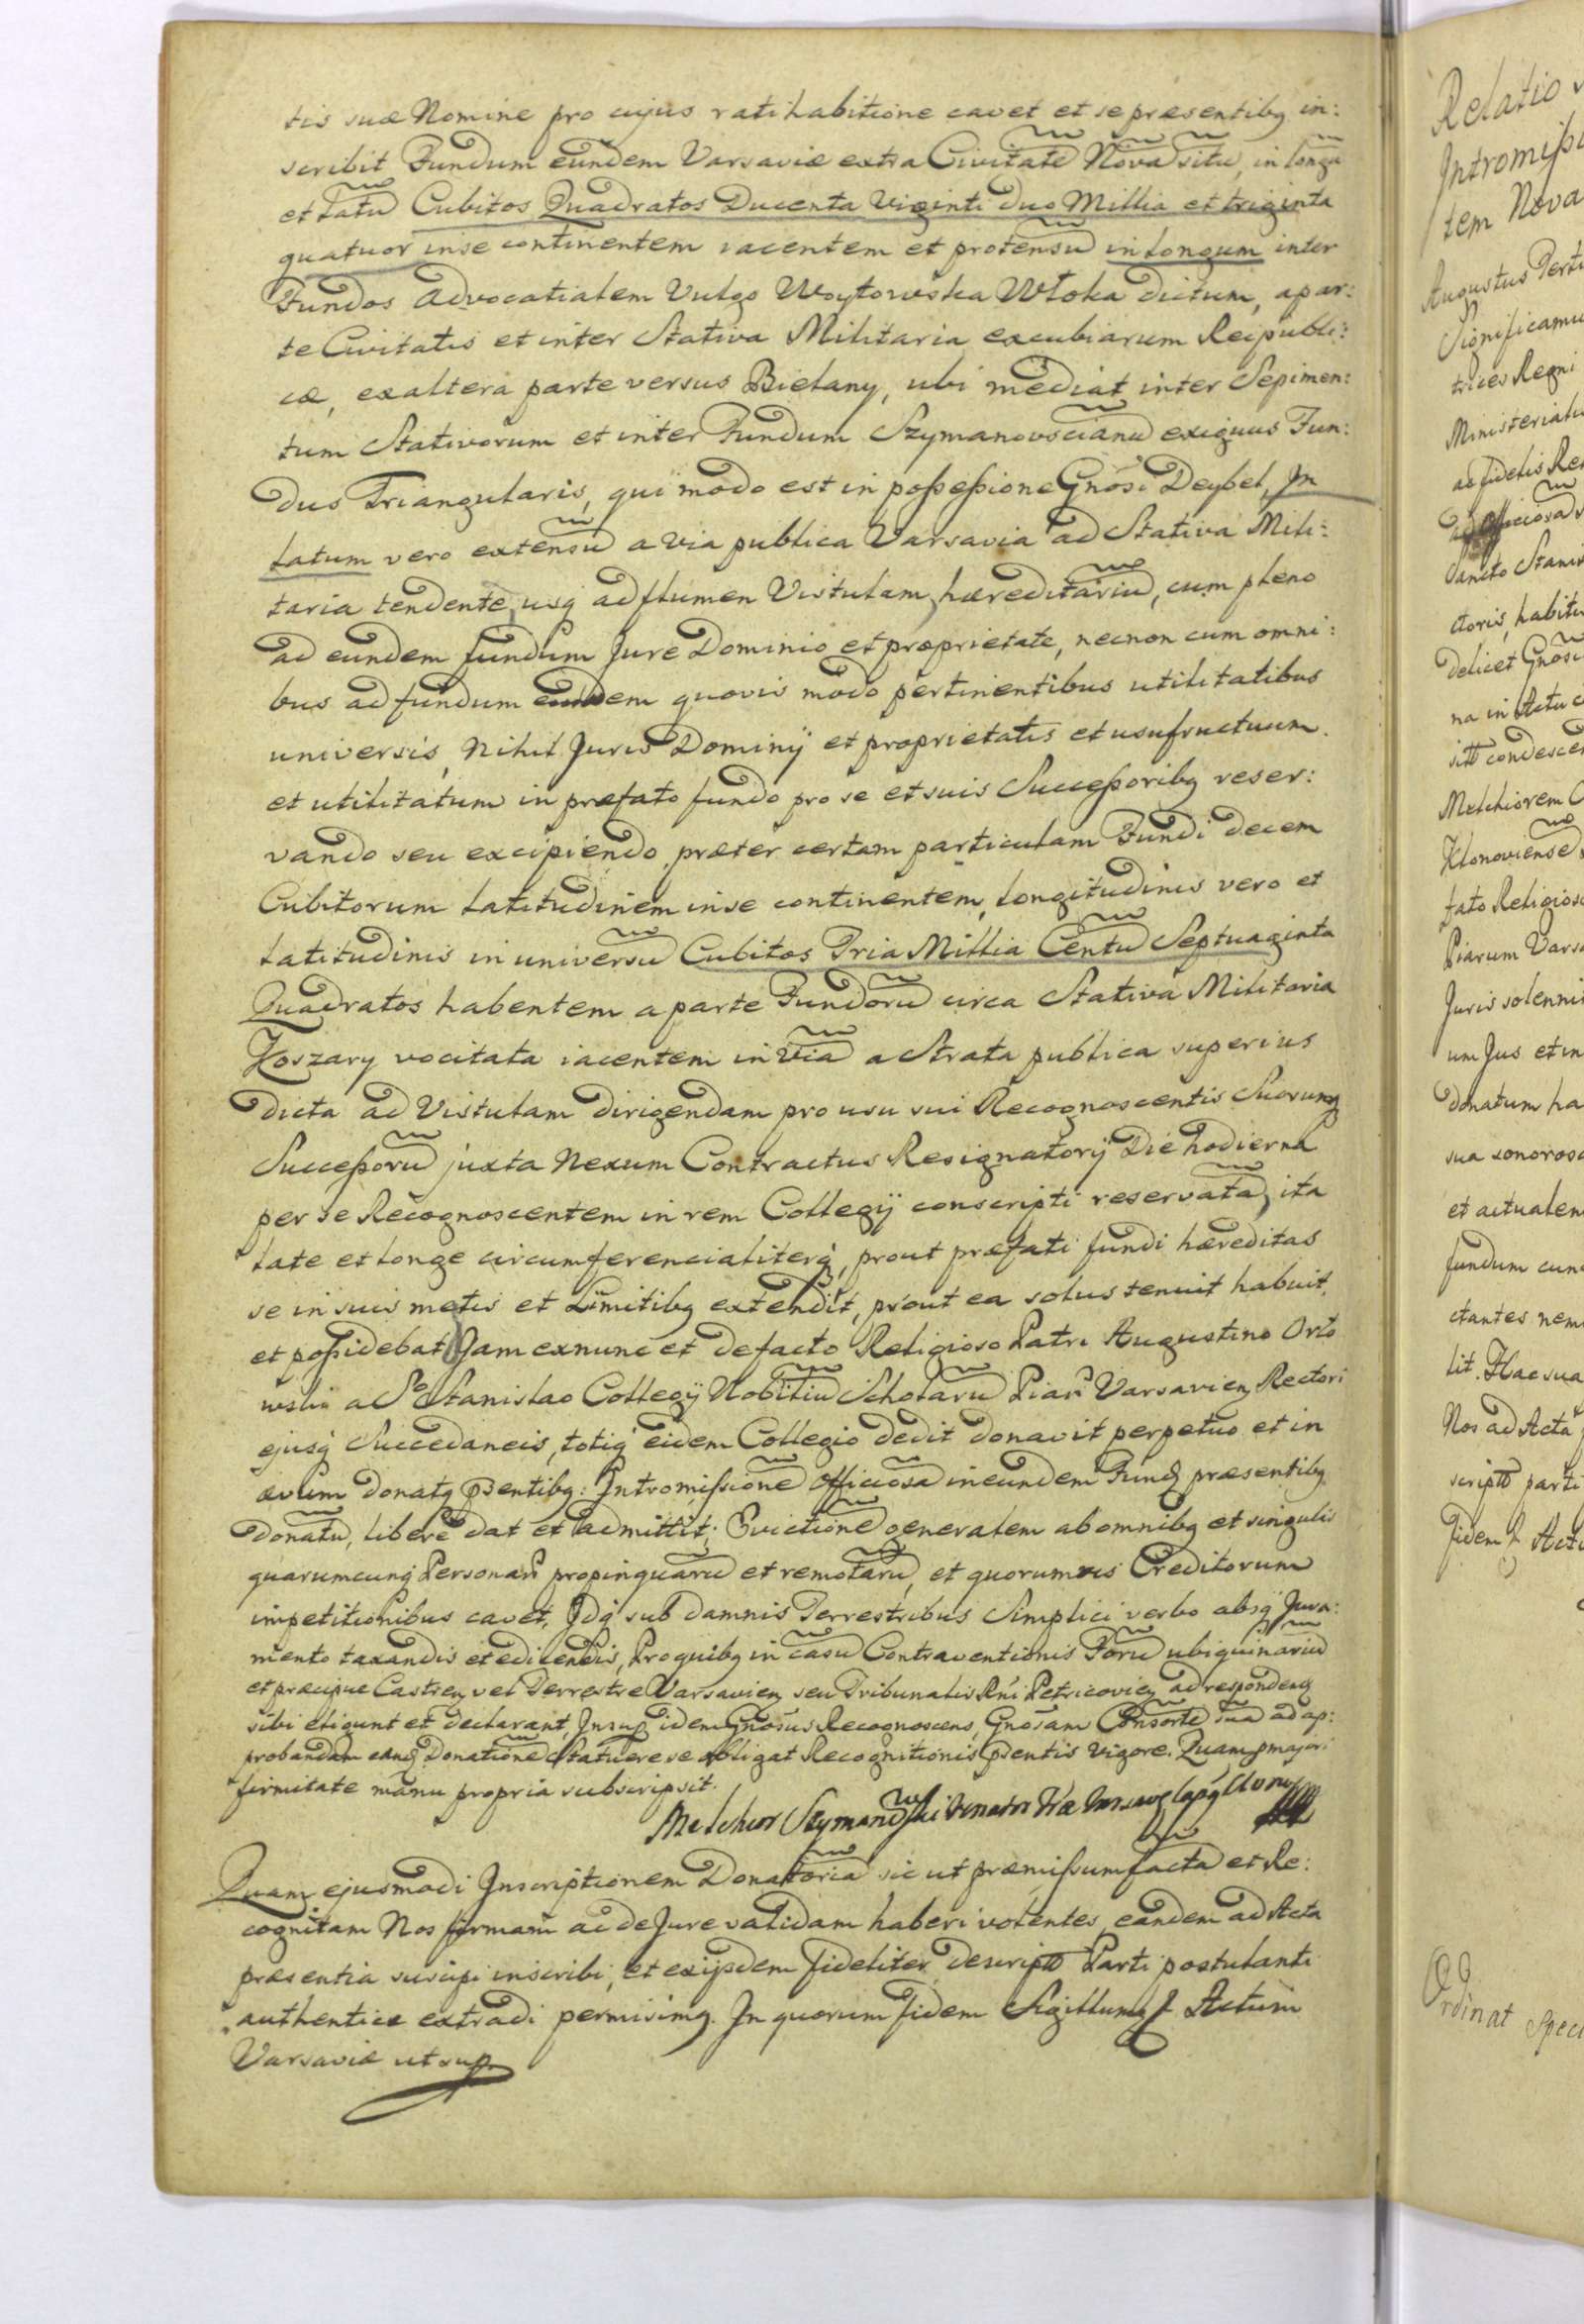 tis suæ Nomine pro cujus ratihabitione cavet et se præsentibq in:
scribit Fundum eundem Varsaviæ extra Civitatẽ Novã sitũ, in longũ
et latũ Cubitos Quadratos Ducenta Viginti duo Millia et triginta
quatuor in se continentem iacentem et protensũ in longum inter
Fundos Advocatialem Vulgo Woytowska Włoka dictum, a par:
te Civitatis et inter Stativa Militaria excubiarum Reipubli:
cæ, ex altera parte versus Bielany, ubi mediat inter Sepimen:
tum Stativorum et inter Fundum Szymanovscianũ exiguus Fun:
dus Triangularis, qui modo est in possessione Gnosi Deybel, In
latum vero extensũ a via publica Varsavia ad Stativa Mili:
taria tendente usq ad flumen Vistulam, hæreditariũ, cum pleno
ad eundem fundum Jure Dominio et proprietate, necnon cum omni:
bus ad fundum eundem quovis modo pertinentibus utilitatibus
universis, Nihil Juris Dominij et proprietatis et usufructuum
et utilitatum in præfato fundo pro se et suis Successoribq reser:
vando seu excipiendo præter certam particulam Fundi decem
Cubitorum Latitudinem in se continentem, longitudinis vero et
latitudinis in universũ Cubitos Tria Millia Centũ Septuaginta
Quadratos habentem a parte Fundorũ circa Stativa Militaria
Koszary vocitata iacentem in viã a Strata publica superius
dicta ad Vistulam dirigendam pro usu sui Recognoscentis Suorumq
Successorũ juxta Nexum Contractus Resignatorij Die hodierna
per se Recognoscentem in rem Collegij conscripti reservatã, ita
late et longe circumferencialiterq, prout præfati fundi hæreditas
se in suis metis et Limitibq extendit, prout ea solus tenuit habuit,
et possidebat Jam exnunc et de facto Religioso Patri Augustino Orło
wski a S Stanislao Collegij Nobiliũ Scholarũ Piar Varsavien Rectori
ejusq Succedaneis, totiq eidem Collegio dedit donavit perpetuo et in
ævum donatq psentibq: Intromissionẽ Officiosã in eundem Fund præsentibq
Donatũ, libere dat et admittit; Evictionẽ generalem ab omnibq et singulis
quarumcunq Personar propinquarũ et remotarũ, et quorumvis Creditorum
impetitionibus cavet, Idq sub damnis Terrestribus Simplici verbo absq Jura:
mento taxandis et edicendis, Pro quibq in casũ Contraventionis Forũ ubiquinariũ
et præcipue Castren vel Terrestre Varsavien seu Tribunalis Rni Petricovien ad respondend
sibi eligunt et declarant, Insup idem Gnosus Recognoscens, Gnosam Consortẽ suã ad ap:
probandam eand Donationẽ Statuere se obligat Recognitionis psentis vigore. Quam p majori
firmitate manu propria subscripsit.
Melchior Szymanowski Venator Træ Varsav
Quam ejusmodi Inscriptionem Donatoriã sic ut præmissum factã et Re:
cognitam Nos firmam ac de Jure validam haberi volentes, eandem ad Acta
præsentia suscipi inscribi, et ex ijsdem fideliter descriptã Parti postulanti
authentice extradi permisimq. In quorum fidem Sigillum Actum
Varsaviæ ut sup
Relatio
Intromissi
tem Nova
Augustus Terti
Significamu
trices Regni
Ministeriali
ac fidelis Re
Sancto Stani
ctoris, habit
delicet Gnosi
na in Actu
condesce
Melchiorem
Klonoviensẽ
fato Religios
Piarum Varsa
Juris solenni
um Jus et in
donatum ha
sua sonoros
et actualem
fundum cum
ctantes nem
lit. Hac sua
Nos ad Acta
scriptũ parti
fidem Actu
Ordinat Spec